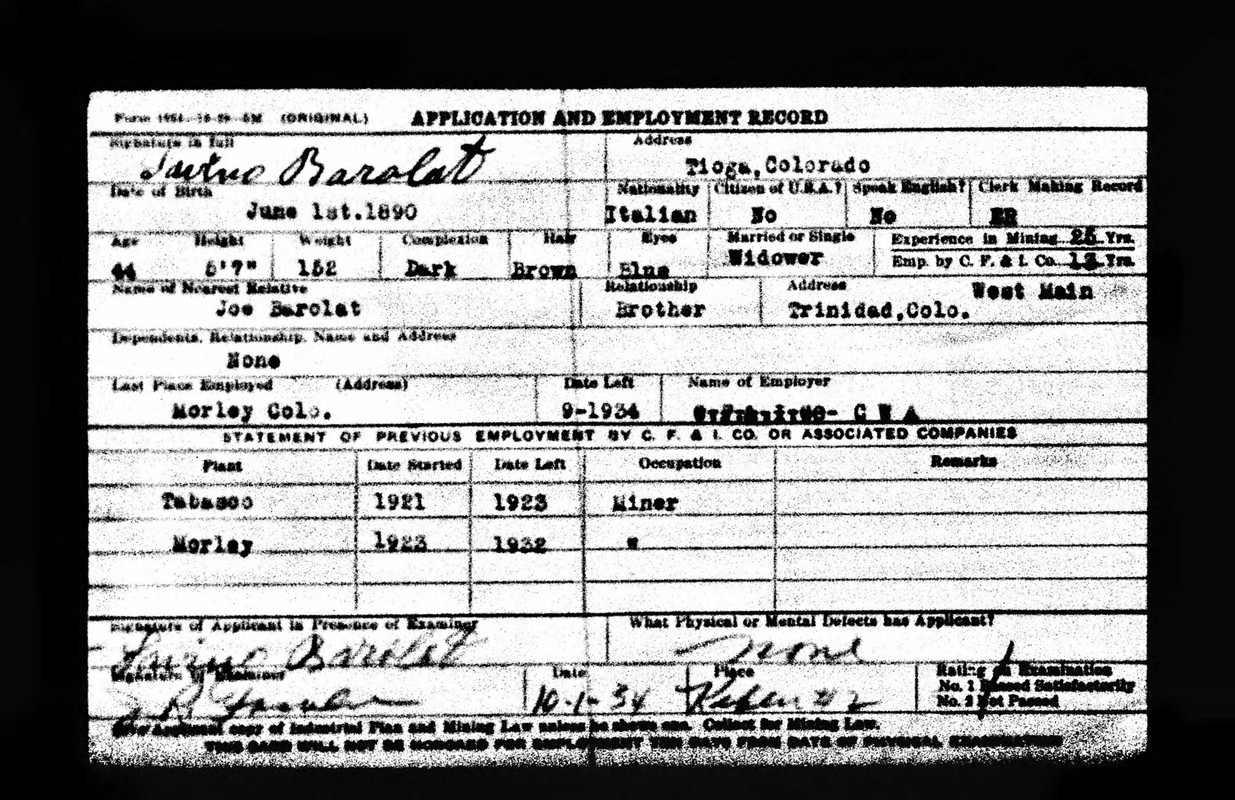 (ORIGINAL) APPLICATION AND EMPLOYMENT RECORD
Signature in full Address
Barolat Tioga,Colorado
Date of Birth Nationality Citizen of U.S.A.? Speak English? Clerk Making Record
June 1st.1890 Italian No No ER
Age Height Weight Complexion Hair Eyes Married or Single Experience in Mining 25 Yrs.
44 5'7" 152 Dark Brown Blue Widower Emp. by C. F. & I. Co. 12 Yrs.
Name of Nearest Relative Relationship Address West Main
Joe Barolat Brother Trinidad,Colo.
Dependents, Relationship, Name and Address
None
Last Place Employed (Address) Date Left Name of Employer
Morley Colo. 9-1934 C W A
STATEMENT OF PREVIOUS EMPLOYMENT BY C. F. & I. CO. OR ASSOCIATED COMPANIES
Plant Date Started Date Left Occupation Remarks
Tabasco 1921 1923 Miner
Morley 1923 1932 "
Signature of Applicant in Presence of Examiner What Physical or Mental Defects has Applicant?
Barolat None
Signature of Examiner Date Place Rating on Examination
10-1-34 No. 1 Passed Satisfactorily
No. 2 Not Passed
Give Applicant copy of Industrial Plan and Mining Law unless he shows one. Collect for Mining Law.
THIS CARD WILL NOT BE